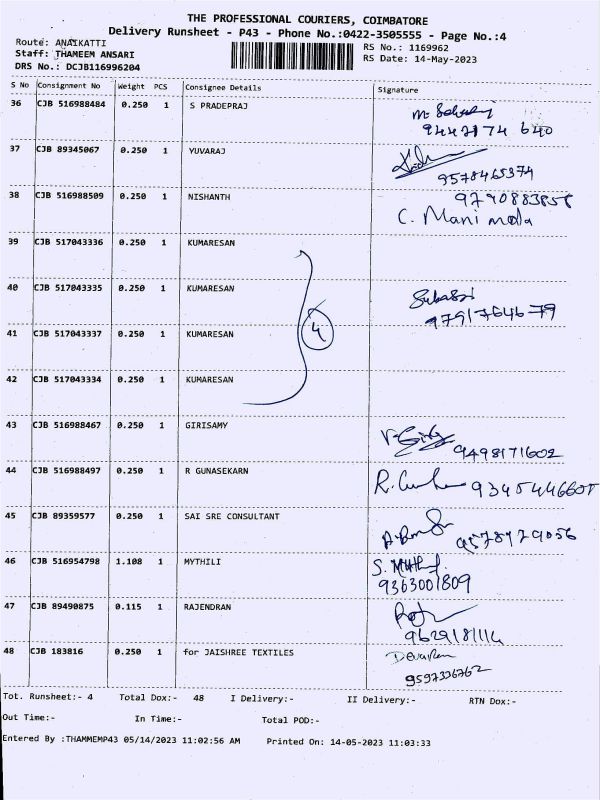 THE PROFESSIONAL COURIERS, COIMBATORE
Delivery Runsheet - P43 - Phone No.:0422-3505555 - Page No.:4
Route: ANAIKATTI
Staff: THAMEEM ANSARI
DRS No.: DCJB116996204
RS No.: 1169962
RS Date: 14-May-2023
S No Consignment No Weight PCS Consignee Details Signature
36 CJB 516988484 0.250 1 S PRADEPRAJ
9442174 640
37 CJB 89345067 0.250 1 YUVARAJ
9578465374
38 CJB 516988509 0.250 1 NISHANTH 9790883856
C. Mani mala
39 CJB 517043336 0.250 1 KUMARESAN
40 CJB 517043335 0.250 1 KUMARESAN
9791764679
41 CJB 517043337 0.250 1 KUMARESAN
4
42 CJB 517043334 0.250 1 KUMARESAN
43 CJB 516988467 0.250 1 GIRISAMY
9498171602
44 CJB 516988497 0.250 1 R GUNASEKARN
45 CJB 89359577 0.250 1 SAI SRE CONSULTANT
46 CJB 516954798 1.108 1 MYTHILI
9363001809
47 CJB 89490875 0.115 1 RAJENDRAN
48 CJB 183816 0.250 1 for JAISHREE TEXTILES
9597336762
Tot. Runsheet:- 4 Total Dox:- 48 I Delivery:- II Delivery:- RTN Dox:-
Out Time:- In Time:- Total POD:-
Entered By :THAMMEMP43 05/14/2023 11:02:56 AM Printed On: 14-05-2023 11:03:33